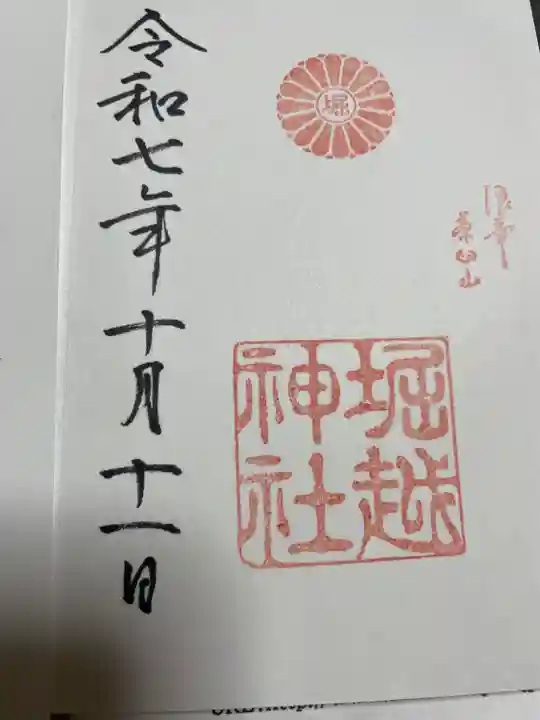 浪華
茶臼山
堀
堀越
神社
令和七年十月十一日